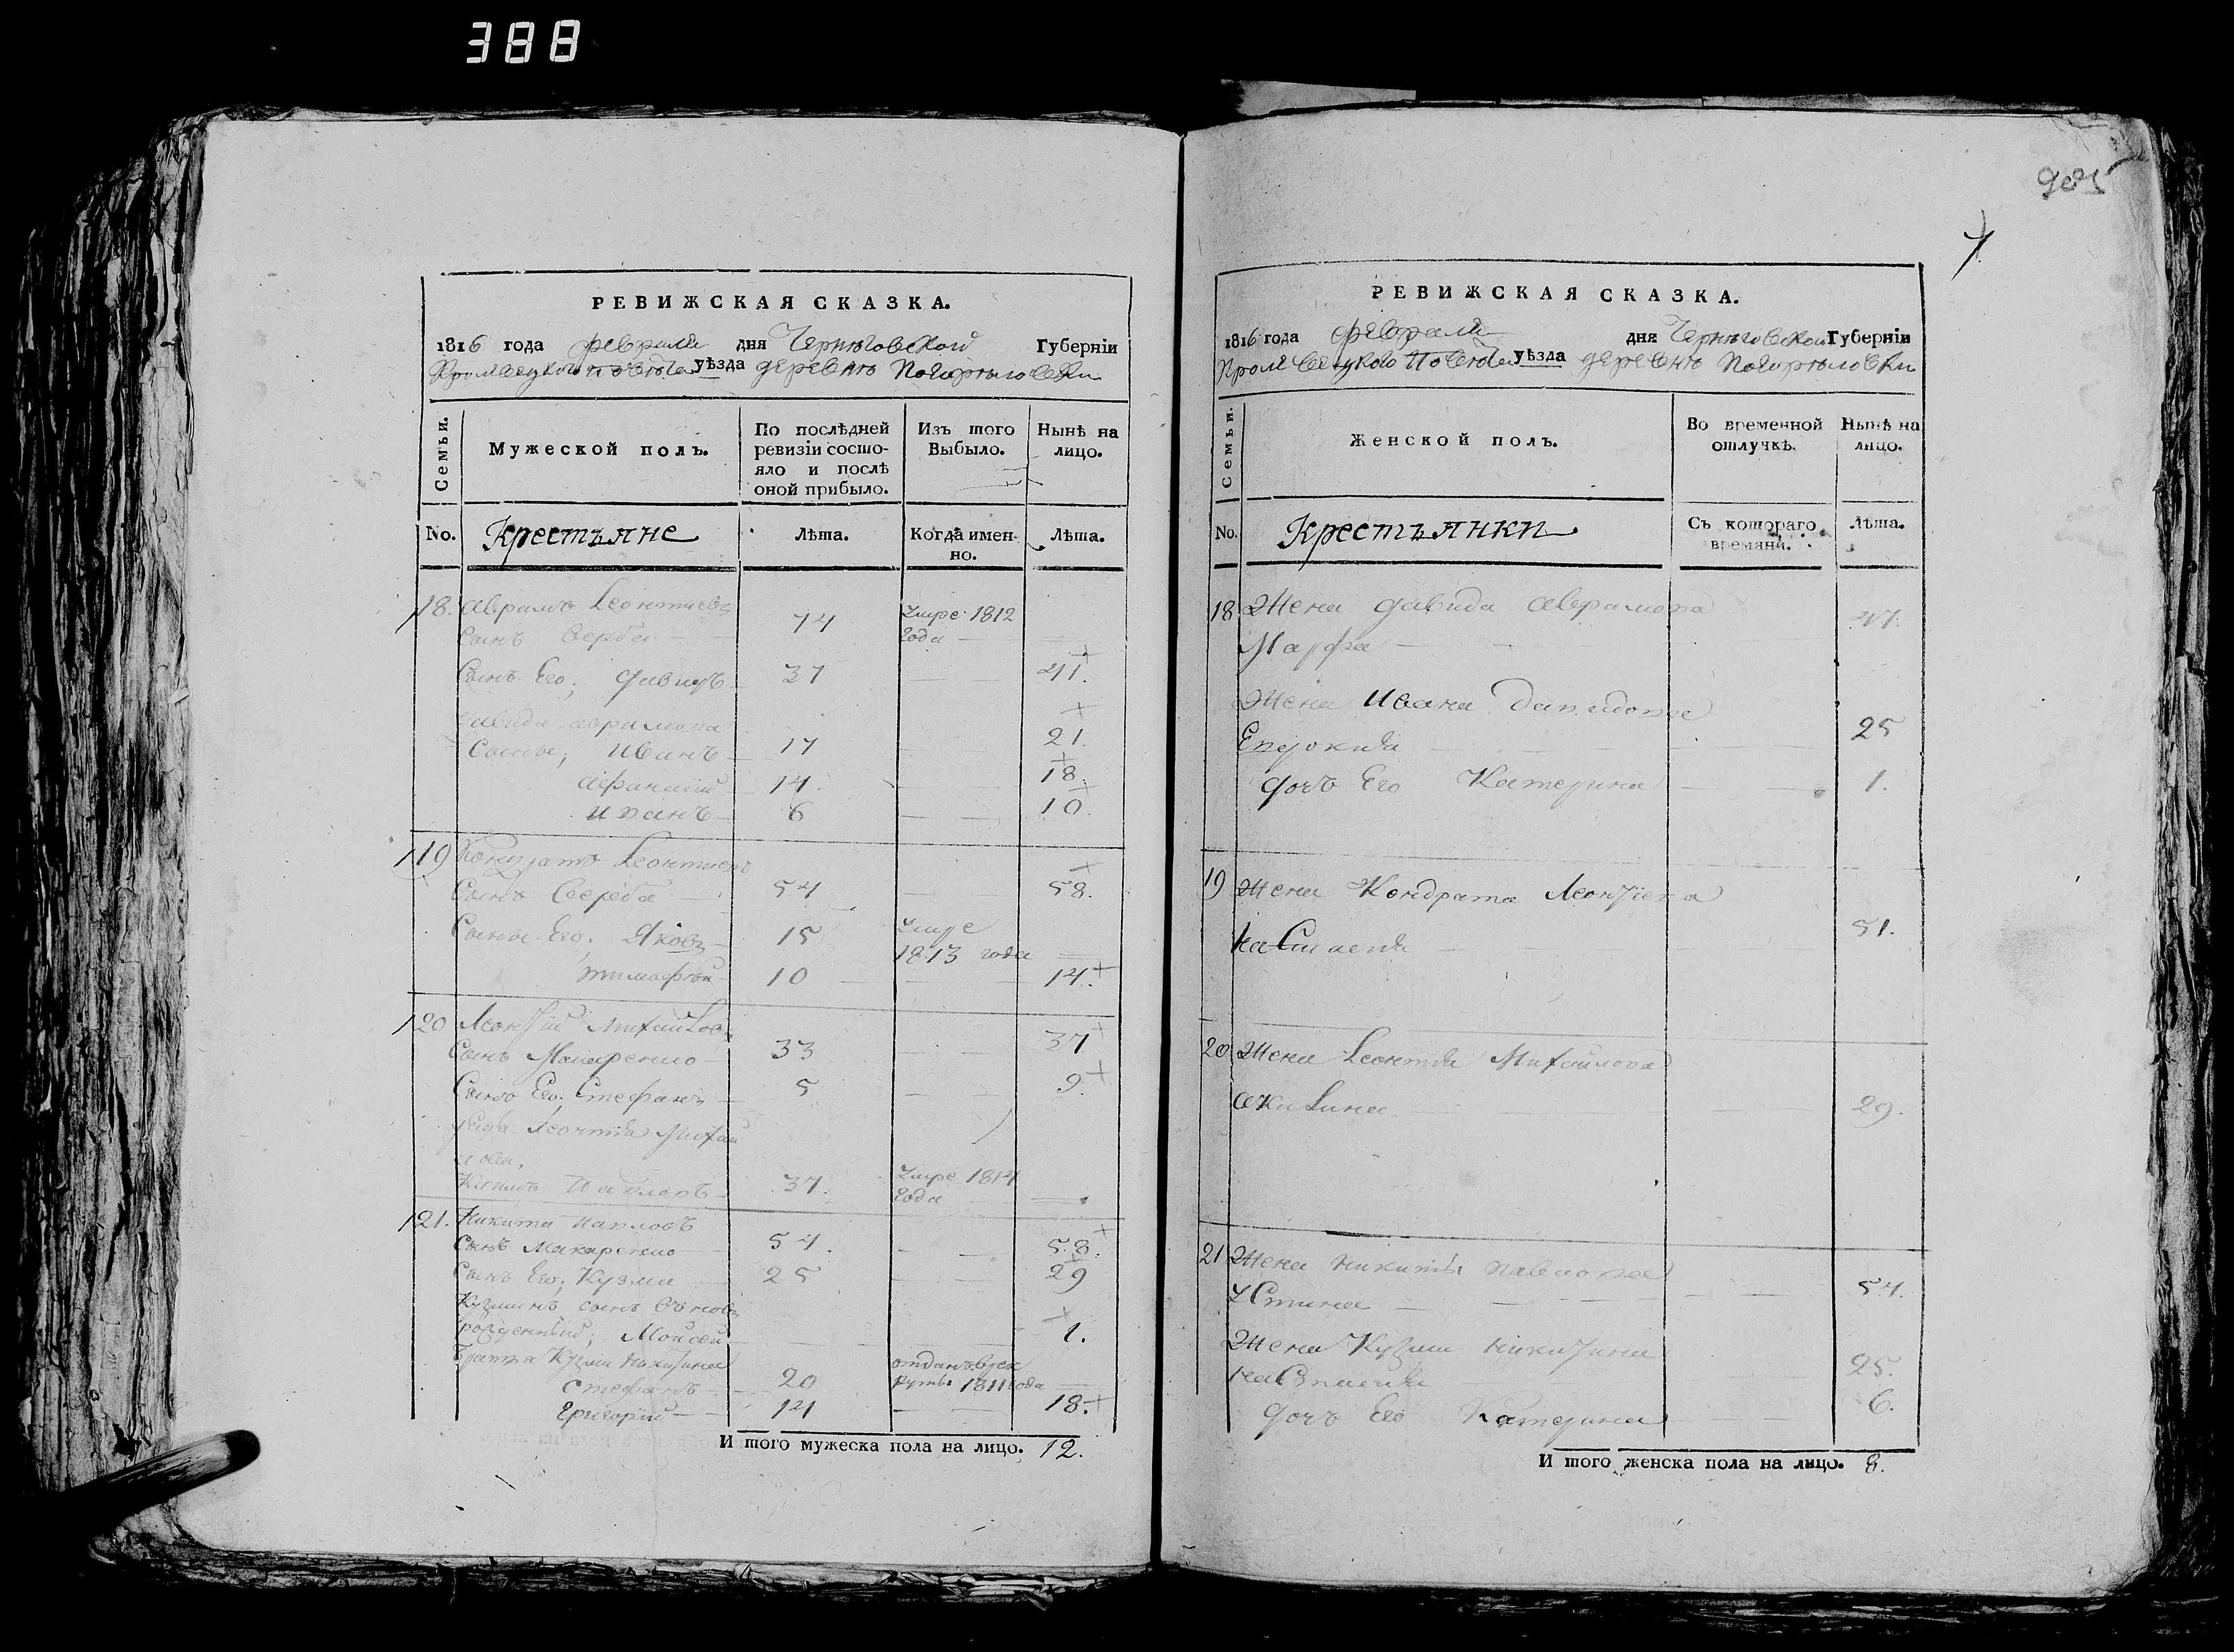 388
РЕВИЖСКАЯ СКАЗКА.
1816 года февраля дня Черниговской Губерніи
Кролевецкого повета уѣзда деревни Погориловки
Семьи.
Мужеской полъ.
По послѣдней ревизіи состо-
яло и послѣ
оной прибыло.
Изъ того
Выбыло.
Нынѣ на
лицо.
No.
Крестъяне
Лѣта.
Когда имен-
но.
Лѣта.
18. Аврамъ Леонтиевъ
Сынъ 74 Умре 1812
года
Сынъ Его; Давидъ 37 41.
Давида Аврамова
Сыны; Иванъ 17 21.
Афанасий 14. 18.
Иванъ 6 10.
19 Кондратъ Леонтиевъ
Сынъ 54 58.
Сыны Его; Яковъ 15 Умре
1813 года
тимофѣй 10 14.
20 Леонтий Михайловъ
Сынъ Макаренко 33 37
Сынъ Его; Стефанъ 5 9.
Леонтия Михай
лова,
Павловъ 37. Умре 1814
года
21. Никита Павловъ
Сынъ Макаренко 54. 58.
Сынъ Его; Кузма 25 29
Кузминъ сынъ вновь
рожденный; Мойсей 1.
Братья Кузми Никитина
Стефанъ 20 отданъ в рек
руты 1811 года
Григорий 14 18.
И того мужеска пола на лицо. 12.
7
РЕВИЖСКАЯ СКАЗКА.
1816 года февраля дня Черниговской Губерніи
Кролевецкого повета уѣзда деревни Погориловки
Семьи.
Женской полъ.
Во временной
отлучкѣ.
Нынѣ на
лицо.
No.
Крестъянки
Съ котораго
времяни.
Лѣта.
18 Жена Давида Аврамова
Марфа 47.
Жена Ивана Давидова
Евдокия 25
дочъ Его Катерина 1.
19 Жена Кондрата Леонтиева
Настасия 51.
20 Жена Леонтия Михайлова
Акилина 29.
21 Жена Никиты Павлова
Устина 54.
Жена Кузми Никитина
Настасия 25.
дочъ Его Катерина 6.
И того женска пола на лицо. 8.